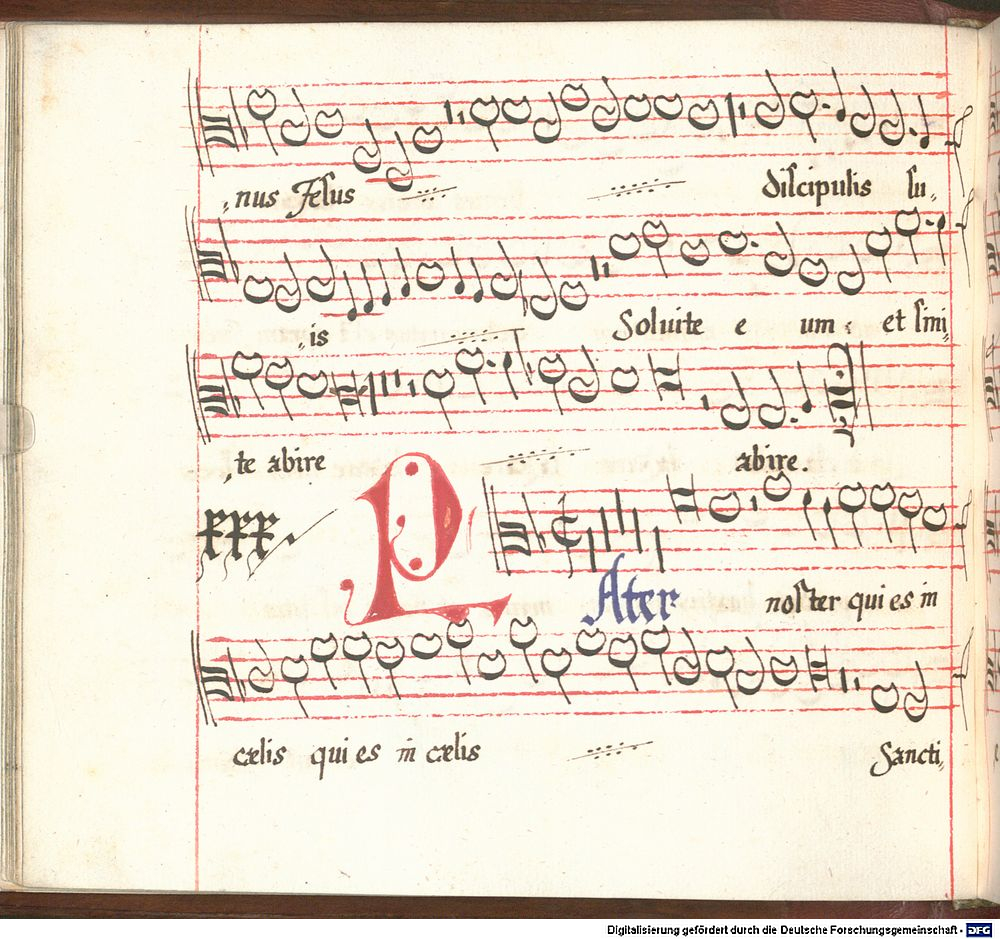 nus Jesus discipulis su-
is Soluite e um et sini-
te abire abire.
xxx. PAter noster qui es in
cælis qui es in cælis Sancti-
Digitalisierung gefördert durch die Deutsche Forschungsgemeinschaft - DFG